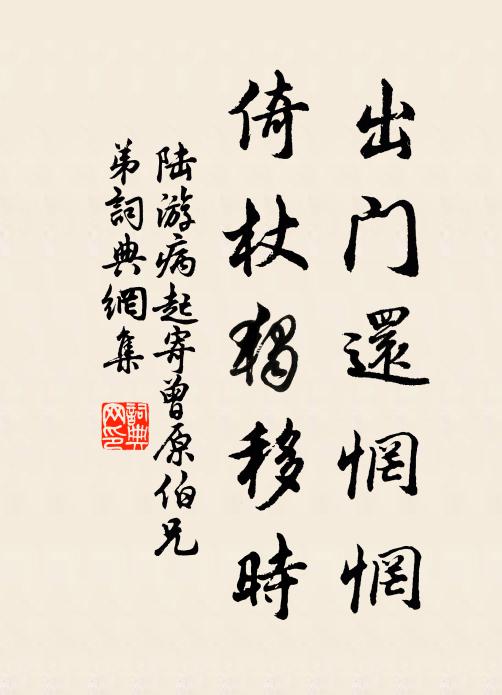 出门還惘惘
倚杖獨移時
陆游病起寄曾原伯兄
弟詞典網集
詞典
网印